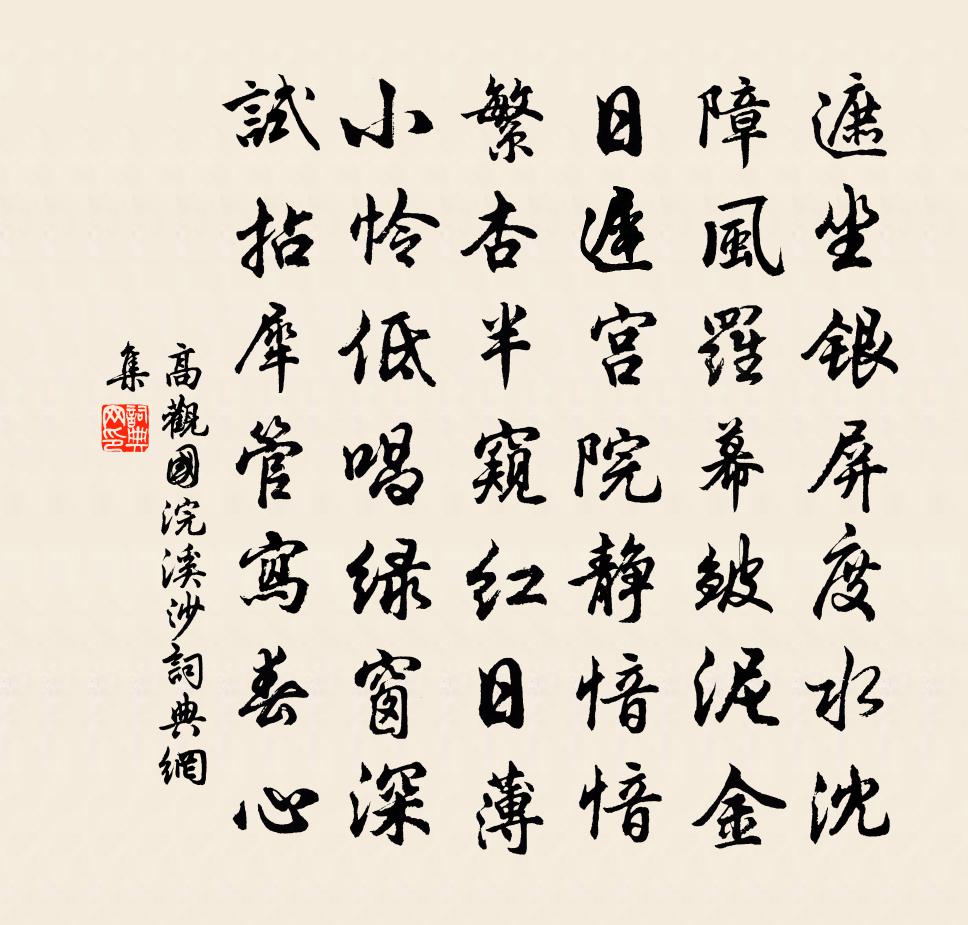 遮坐銀屏度水沈
障風羅幕皺泥金
日遲宮院靜愔愔
繁杏半窺紅日薄
小怜低唱绿窗深
試拈犀管寫春心
高觀國浣溪沙詞典網
集
詞典网印